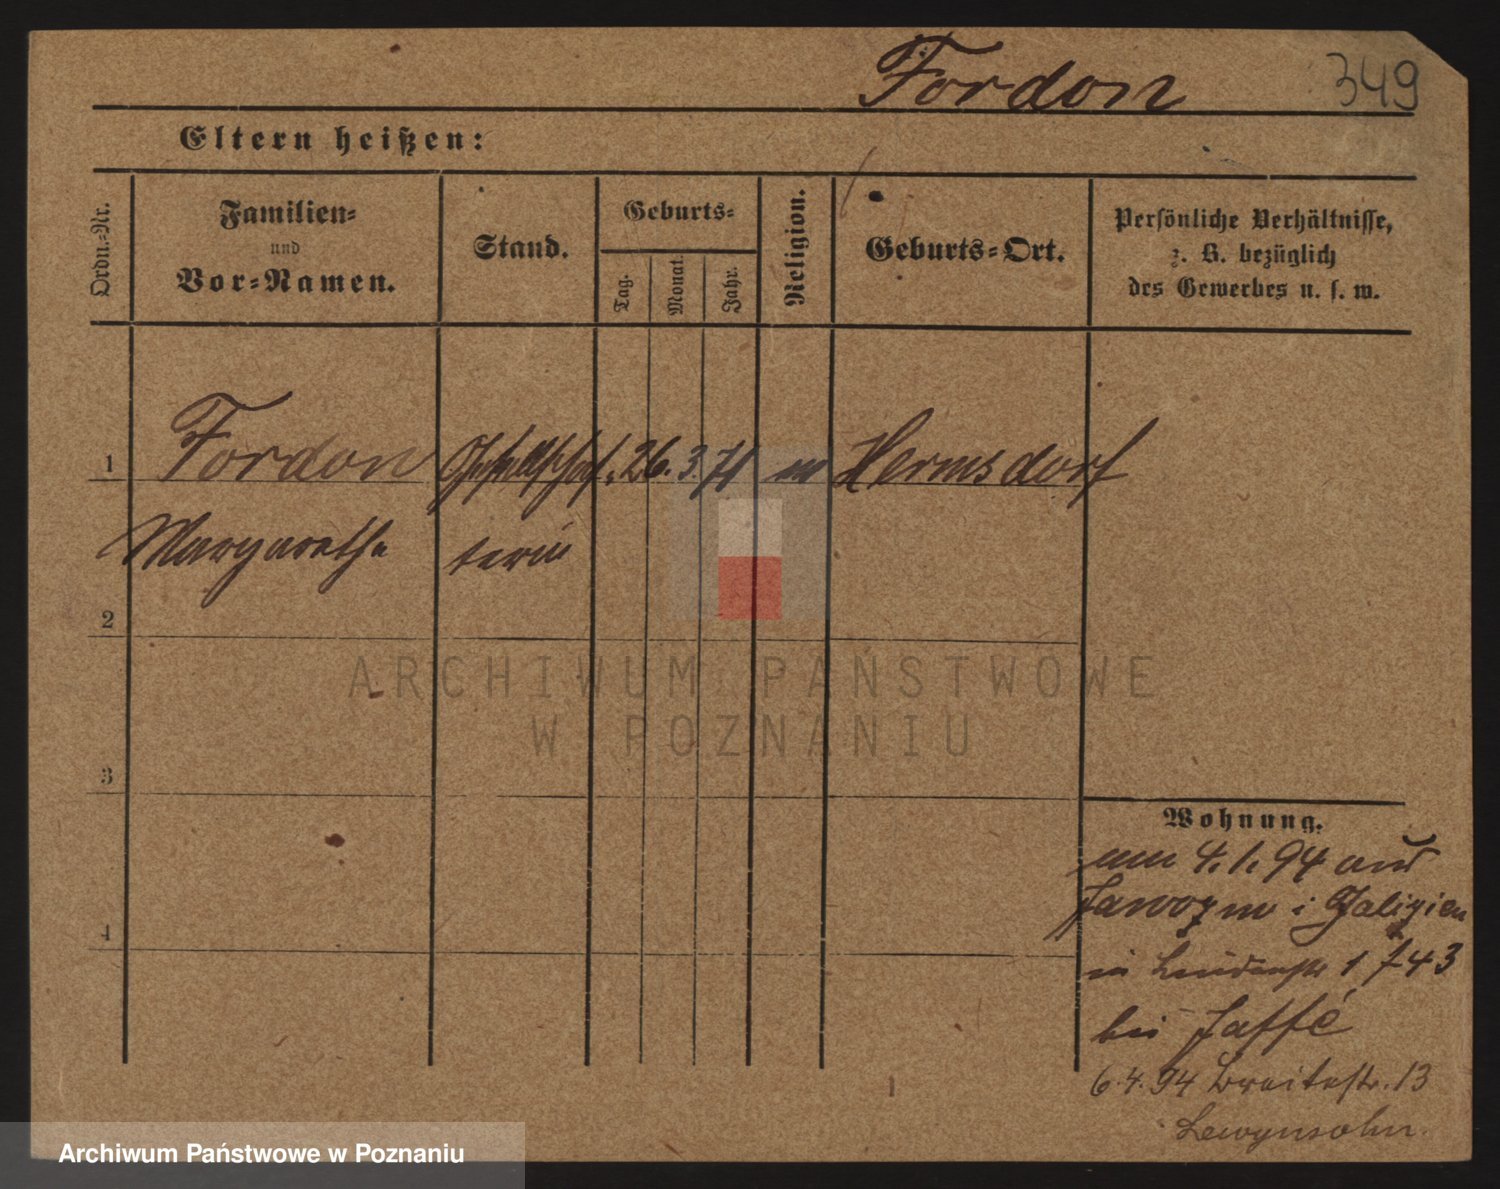 Fordon 349
Eltern heißen:
Ordn.-Nr.
Familien-
und
Vor-Namen.
Stand.
Geburts-
Tag.
Monat.
Jahr.
Religion.
Geburts-Ort.
Persönliche Verhältnisse,
z. B. bezüglich
des Gewerbes u. s. w.
1 Fordon Gesellschaf 26. 3. 71 m Hermsdorf
Margarethe terin
2
3
4
ARCHIWUM PAŃSTWOWE
W POZNANIU
Wohnung.
4.1.94 aus
i Galizien
in Lindenstr 1
bei Jaffé
6.4.94 Breitestr. 13
Lewynsohn.
Archiwum Państwowe w Poznaniu